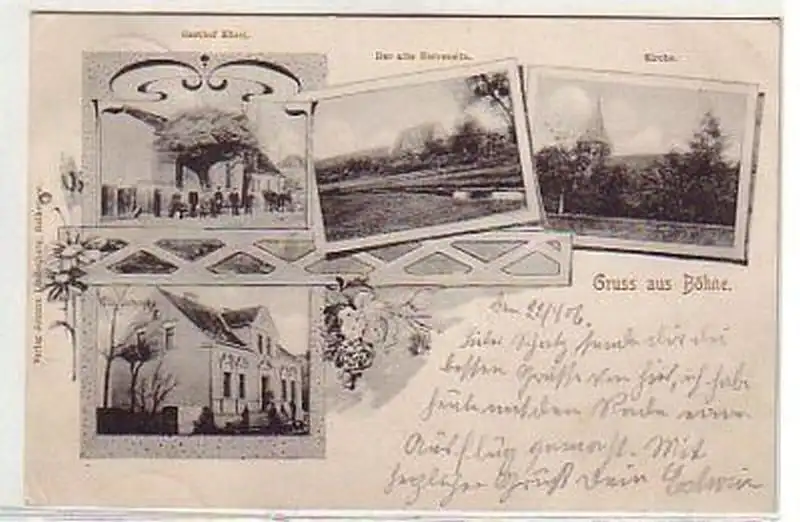 Gasthof Ebert.
Der alte
Kirche.
Gruss aus Böhne.
Den 22/4 06.
Lieber Schatz sende dir die
besten Grüße von hier, ich habe
heute mit dem Rade einen
Ausflug gemacht. Mit
herzlicher Gruß Dein